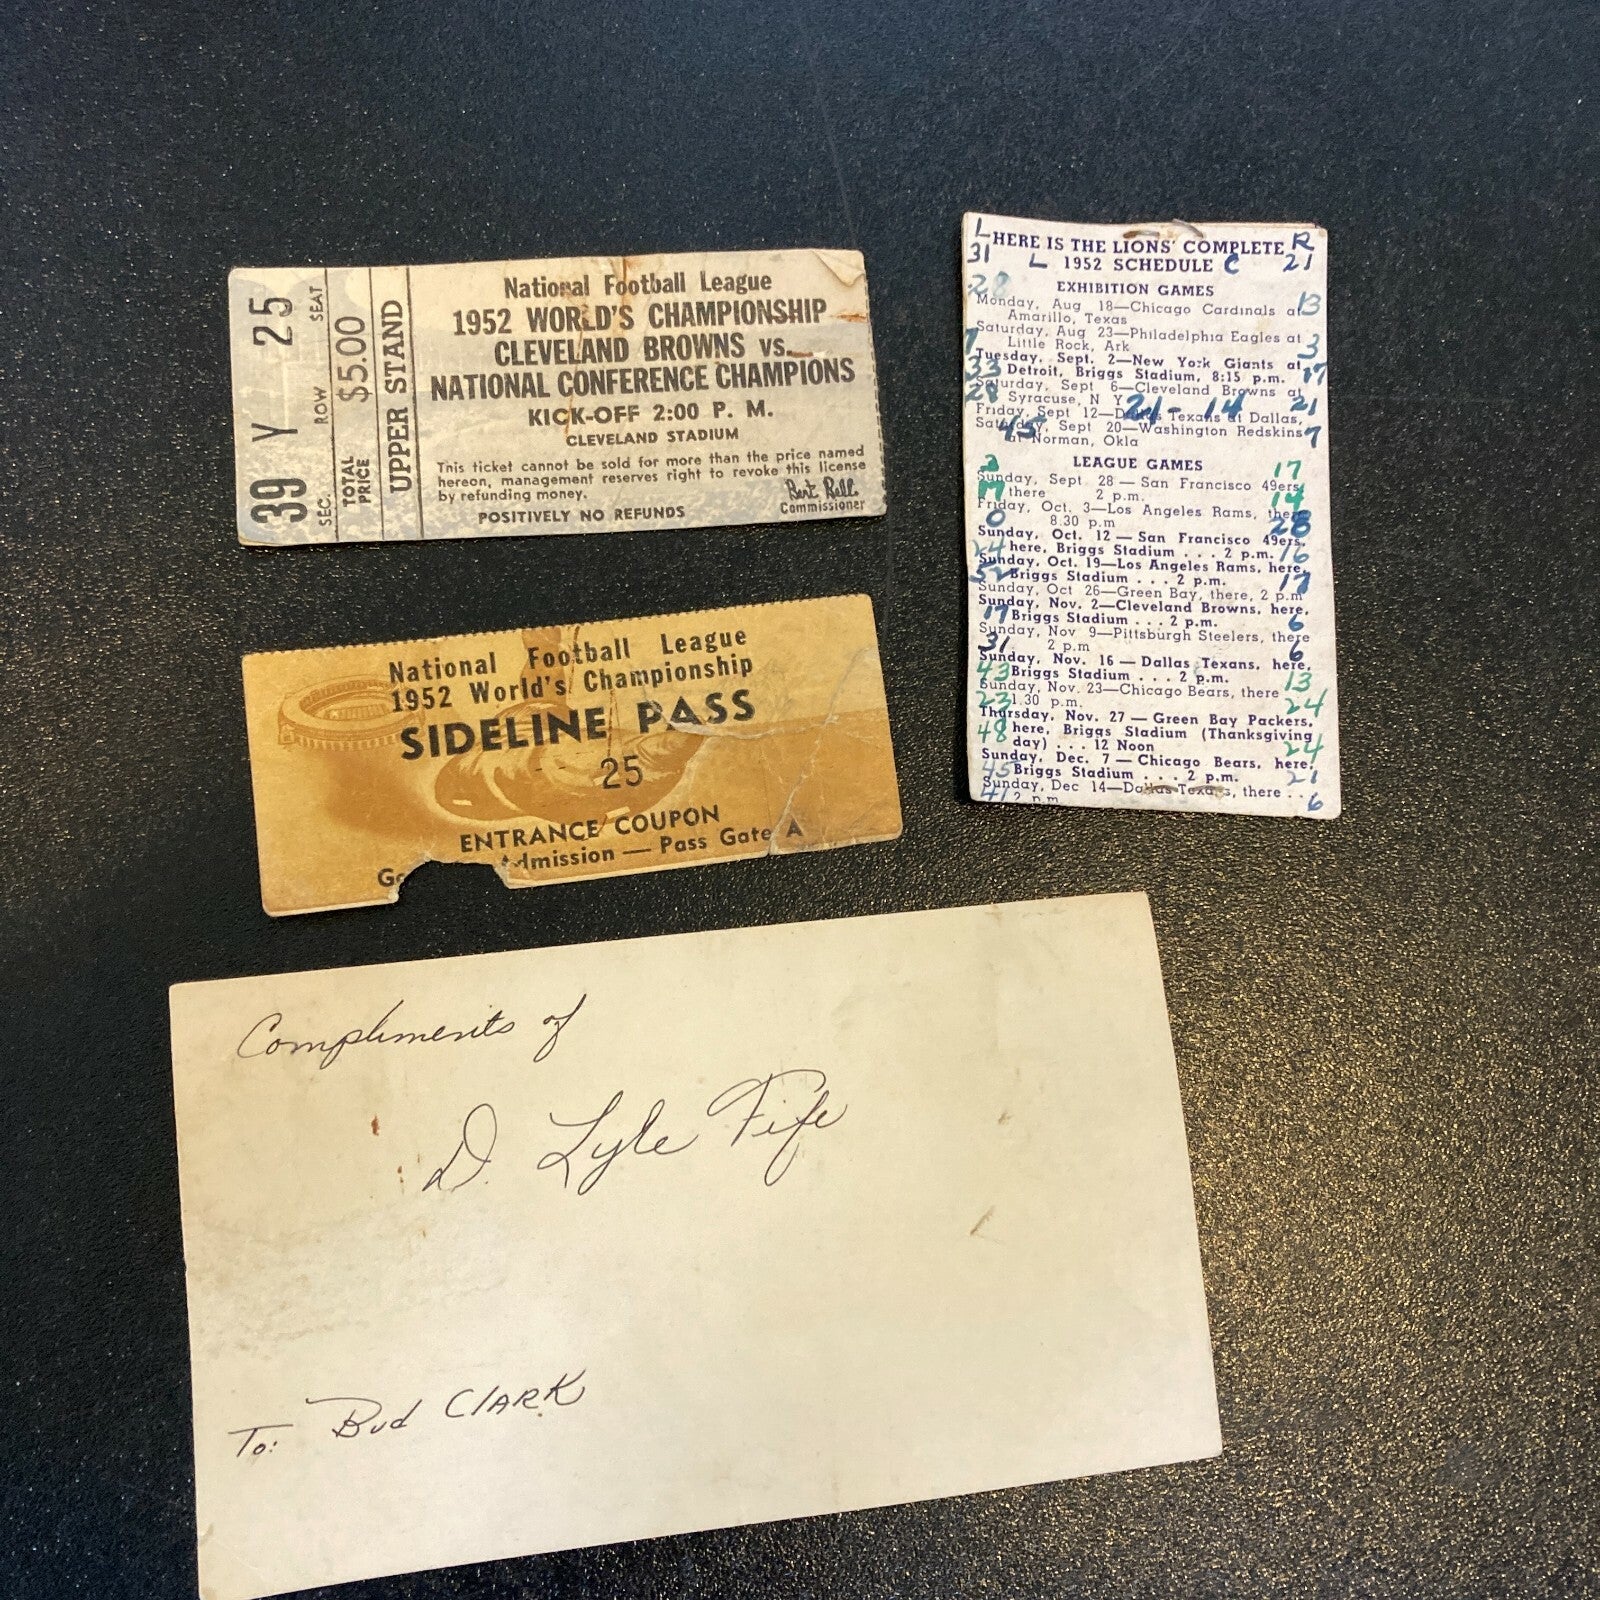 39 Y 25
SEC. ROW SEAT
TOTAL PRICE $5.00
UPPER STAND
National Football League
1952 WORLD'S CHAMPIONSHIP
CLEVELAND BROWNS vs.
NATIONAL CONFERENCE CHAMPIONS
KICK-OFF 2:00 P. M.
CLEVELAND STADIUM
This ticket cannot be sold for more than the price named
hereon, management reserves right to revoke this license
by refunding money.
Bert Bell
POSITIVELY NO REFUNDS
Commissioner
L HERE IS THE LIONS' COMPLETE R
31 L 1952 SCHEDULE C 21
EXHIBITION GAMES
28 Monday, Aug 18—Chicago Cardinals at 13
Amarillo, Texas
Saturday, Aug 23—Philadelphia Eagles at
7 Little Rock, Ark 3
Tuesday, Sept. 2—New York Giants at
33 Detroit, Briggs Stadium, 8:15 p.m. 17
Saturday, Sept 6—Cleveland Browns at
28 Syracuse, N Y 21-14 21
Friday, Sept 12—Dallas Texans at Dallas,
Saturday, Sept 20—Washington Redskins
45 at Norman, Okla 7
LEAGUE GAMES
3 17
Sunday, Sept 28—San Francisco 49ers
17 there 2 p.m. 14
Friday, Oct. 3—Los Angeles Rams, there
0 8.30 p.m 28
Sunday, Oct. 12—San Francisco 49ers,
24 here, Briggs Stadium . . . 2 p.m. 16
Sunday, Oct. 19—Los Angeles Rams, here,
52 Briggs Stadium . . . 2 p.m. 17
Sunday, Oct 26—Green Bay, there, 2 p.m
Sunday, Nov. 2—Cleveland Browns, here,
17 Briggs Stadium . . . 2 p.m. 6
Sunday, Nov 9—Pittsburgh Steelers, there
31 2 p.m 6
Sunday, Nov. 16—Dallas Texans, here,
43 Briggs Stadium . . . 2 p.m. 13
Sunday, Nov. 23—Chicago Bears, there
23 1.30 p.m. 24
Thursday, Nov. 27—Green Bay Packers,
48 here, Briggs Stadium (Thanksgiving
day) . . . 12 Noon 24
Sunday, Dec. 7—Chicago Bears, here,
45 Briggs Stadium . . . 2 p.m. 21
Sunday, Dec 14—Dallas Texans, there . .
41 2 p.m 6
National Football League
1952 World's Championship
SIDELINE PASS
25
ENTRANCE COUPON
Admission — Pass Gate A
Compliments of
D. Lyle Fife
To: Bud CLARK